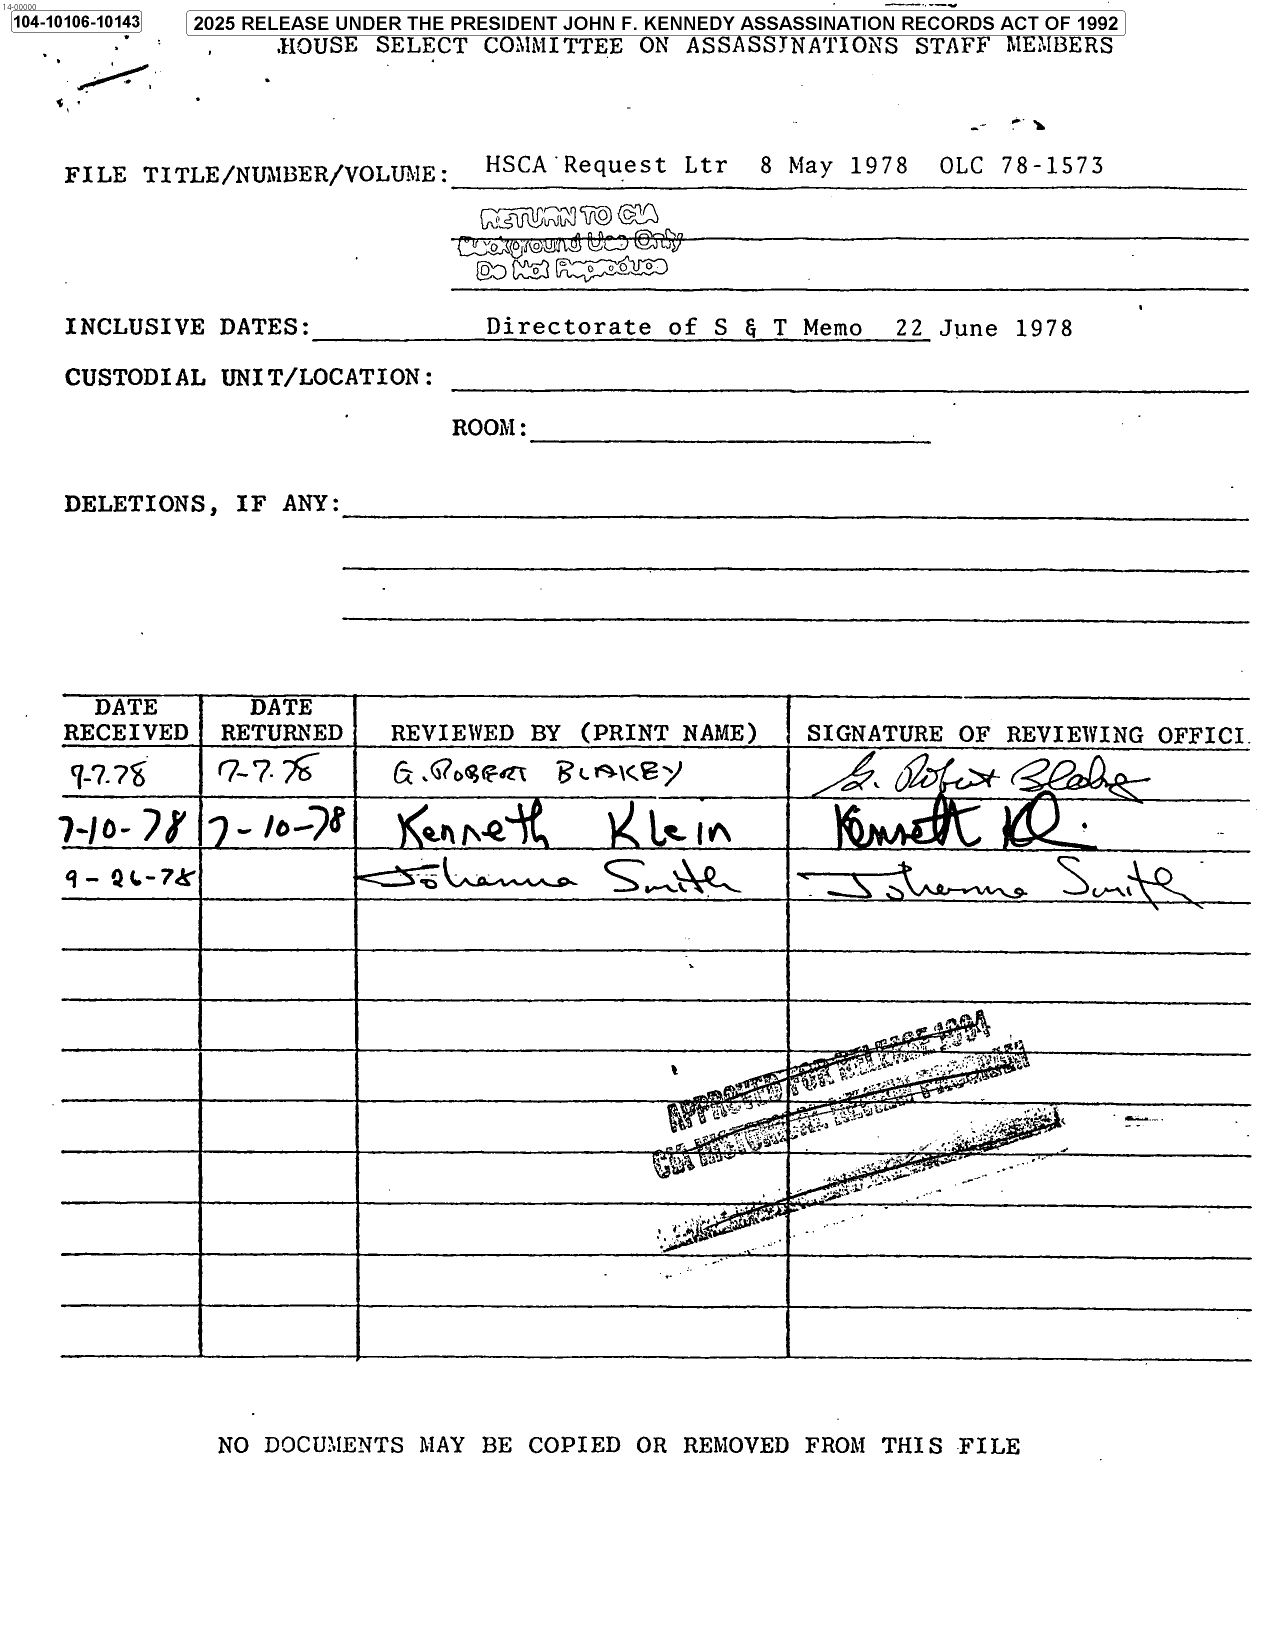 14-00000
104-10106-10143
2025 RELEASE UNDER THE PRESIDENT JOHN F. KENNEDY ASSASSINATION RECORDS ACT OF 1992
HOUSE SELECT COMMITTEE ON ASSASSINATIONS STAFF MEMBERS
FILE TITLE/NUMBER/VOLUME: HSCA Request Ltr 8 May 1978 OLC 78-1573
RETURN TO CIA
Background Use Only
Do Not Reproduce
INCLUSIVE DATES: Directorate of S & T Memo 22 June 1978
CUSTODIAL UNIT/LOCATION:
ROOM:
DELETIONS, IF ANY:
DATE RECEIVED DATE RETURNED REVIEWED BY (PRINT NAME) SIGNATURE OF REVIEWING OFFICI
7-7.78 7-7.78 G. ROBERT BLAKEY G. Robert Blakey
7-10-78 7-10-78 Kenneth Klein Kenneth Kl.
9-26-78 Johanna Smith Johanna Smith
APPROVED FOR RELEASE 1994
CIA HISTORICAL REVIEW PROGRAM
NO DOCUMENTS MAY BE COPIED OR REMOVED FROM THIS FILE